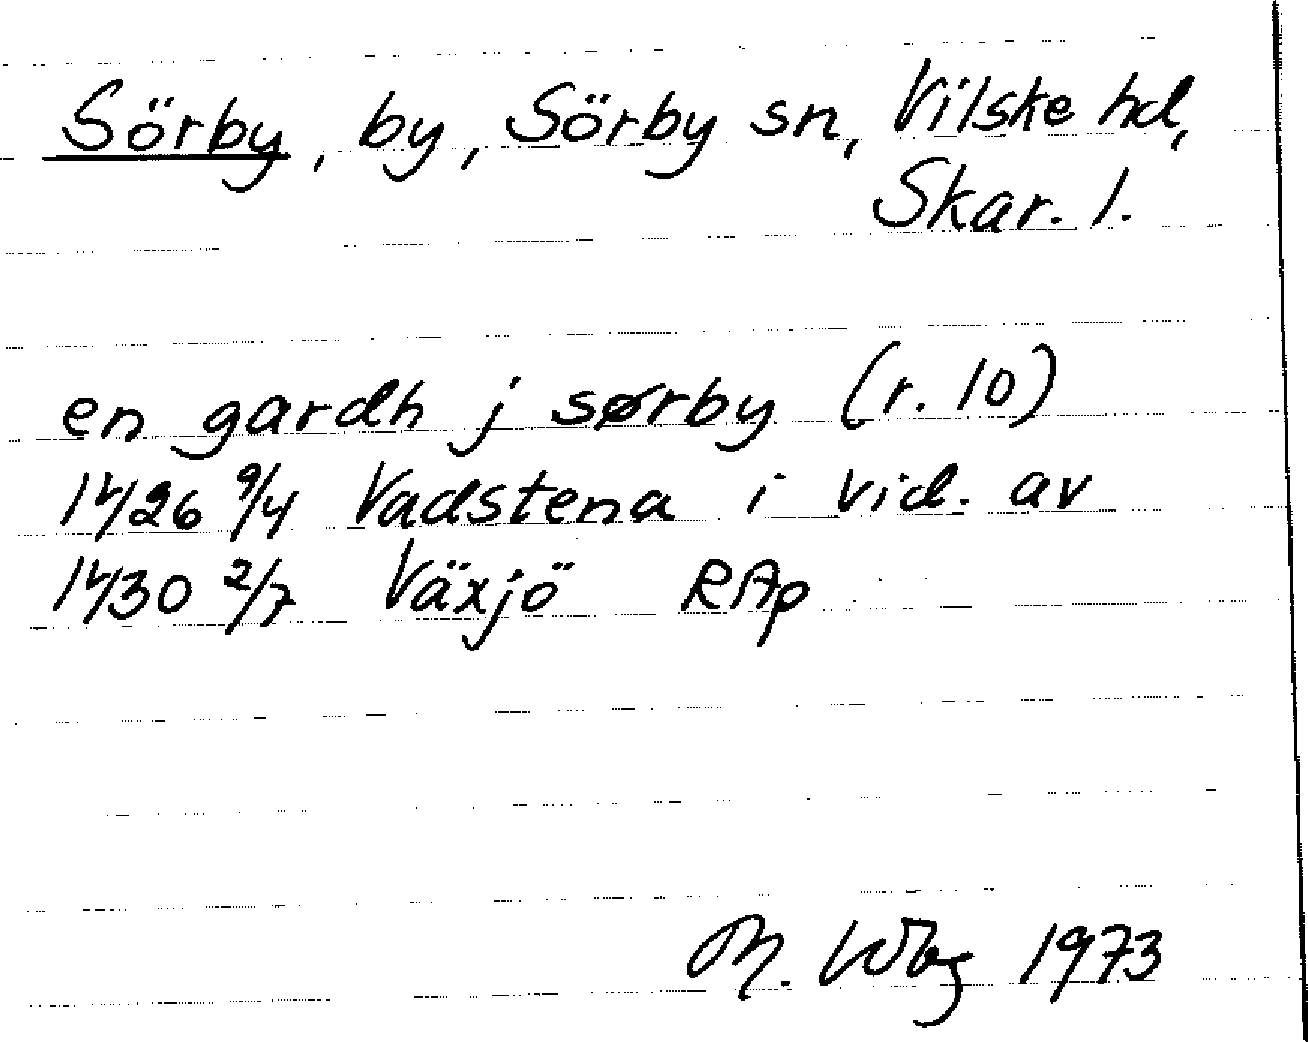 Sörby, by, Sörby sn, Vilske hd,
Skar. l.
en gardh j sørby (r. 10)
1426 9/4 Vadstena i vid. av
1430 2/7 Växjö RAp
M. 1973